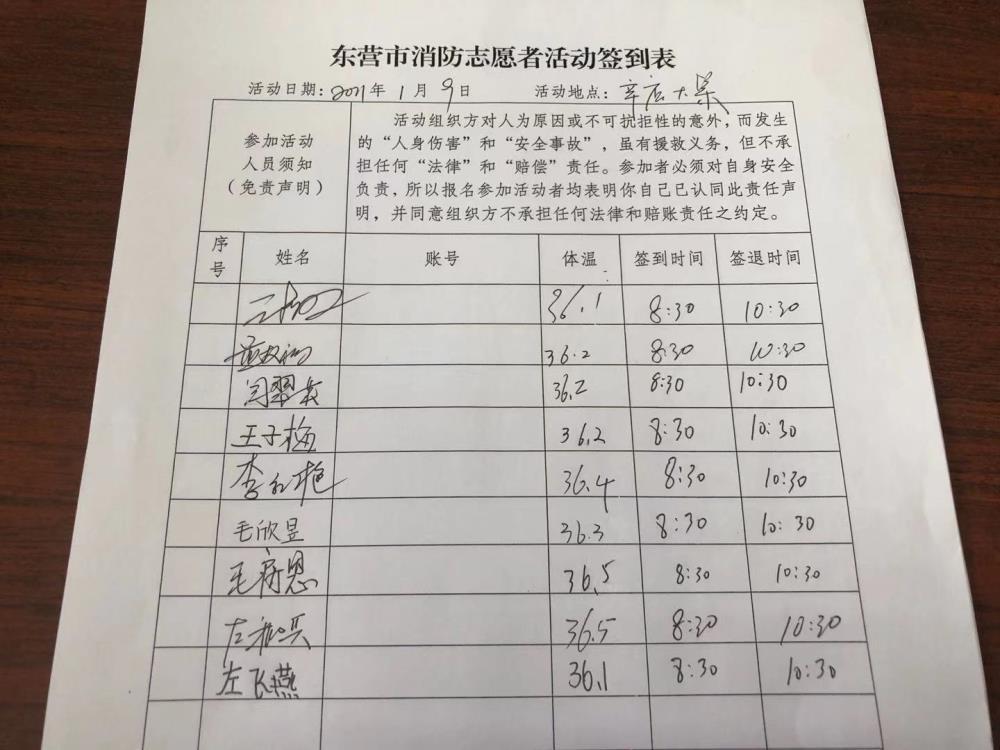 东营市消防志愿者活动签到表
活动日期：2021年1月9日 活动地点：辛店大集
参加活动
人员须知
（免责声明）
活动组织方对人为原因或不可抗拒性的意外，而发生
的“人身伤害”和“安全事故”，虽有援救义务，但不承
担任何“法律”和“赔偿”责任。参加者必须对自身安全
负责，所以报名参加活动者均表明你自己已认同此责任声
明，并同意组织方不承担任何法律和赔账责任之约定。
序号 姓名 账号 体温 签到时间 签退时间
36.1 8:30 10:30
36.2 8:30 10:30
36.2 8:30 10:30
王子梅 36.2 8:30 10:30
李红艳 36.4 8:30 10:30
毛欣昱 36.3 8:30 10:30
毛 恩 36.5 8:30 10:30
左 36.5 8:30 10:30
左飞燕 36.1 8:30 10:30